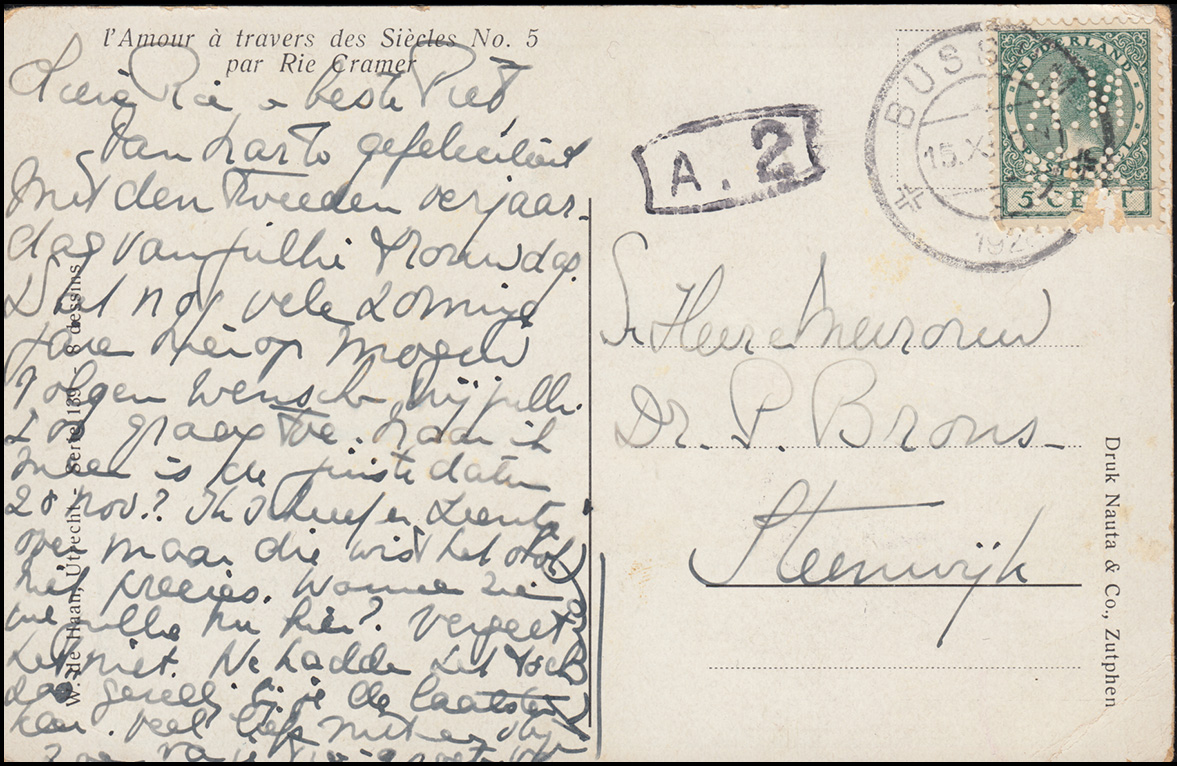 l'Amour à travers des Siècles No. 5
par Rie Cramer
Lieve Rie en beste Piet,
Van harte gefeliciteerd
Met den tweeden verjaar-
dag van jullie trouwdag.
Dat nog vele zonnige
jaren hierop mogen
volgen wenschen wij jullie
zoo graag toe. Maar ik
meen is de juiste datum
20 Nov.? Ik schreef er
over maar die wist het ook
niet precies. Wanneer zien
we jullie nu hier? Vergeet
het niet. We hadden het toch
zoo gezellig bij je de laatste
keer. Veel liefs
W. de Haan, Utrecht. Serie 139 - 8 dessins
A. 2
BUSS
15.X
192
NEDERLAND
5 CENT
Heer en Mevrouw
Dr. P. Brons-
Steenwijk
Druk Nauta & Co., Zutphen